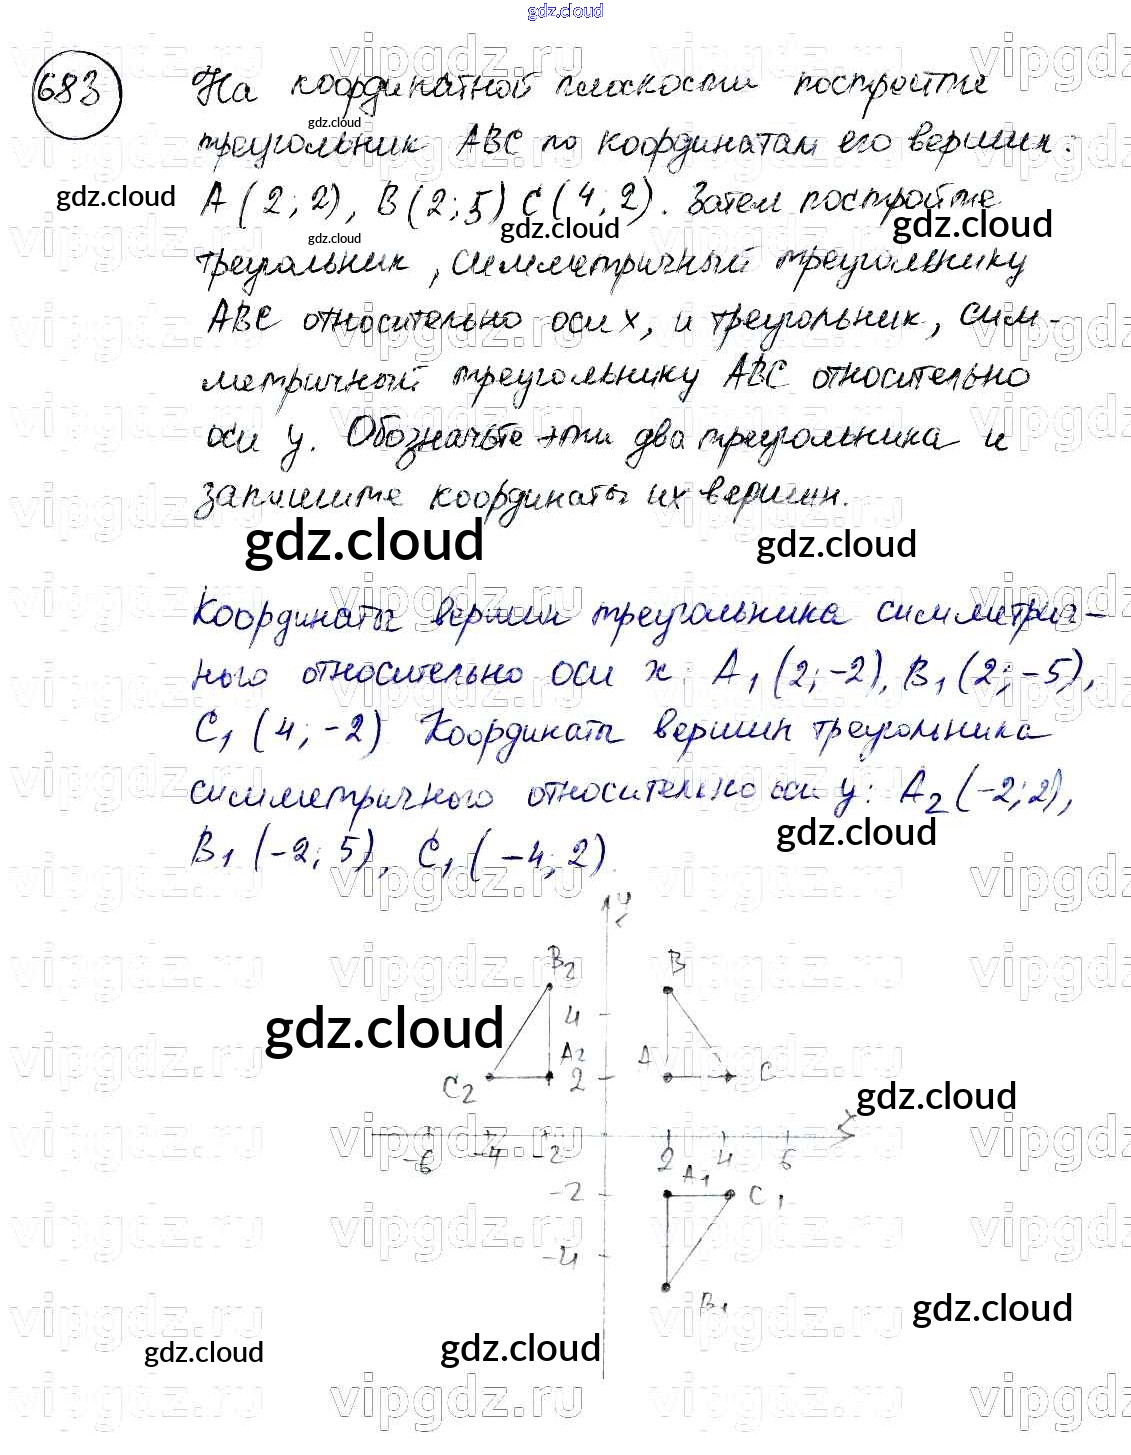 gdz.cloud
683 На координатной плоскости постройте
треугольник ABC по координатам его вершин:
A (2; 2), B (2; 5) C (4; 2). Затем постройте
треугольник, симметричный треугольнику
ABC относительно оси x, и треугольник, сим-
метричный треугольнику ABC относительно
оси y. Обозначьте эти два треугольника и
запишите координаты их вершин.
gdz.cloud gdz.cloud
Координаты вершин треугольника симметрич-
ного относительно оси x: A1 (2; -2), B1 (2; -5),
C1 (4; -2) Координаты вершин треугольника
симметричного относительно оси y: A2 (-2; 2),
gdz.cloud
B1 (-2; 5), C1 (-4; 2).
y
B2 B
4
gdz.cloud
A2 A C
C2 2
gdz.cloud
x
-6 -4 -2 2 4 6
A1
-2 C1
-4
B1
gdz.cloud
gdz.cloud gdz.cloud
vipgdz.ru